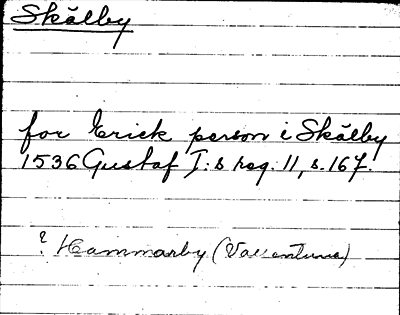 Skålby
for Erick person i Skålby
1536 Gustaf I:s reg. 11, s. 167.
? Hammarby (Vallentuna)